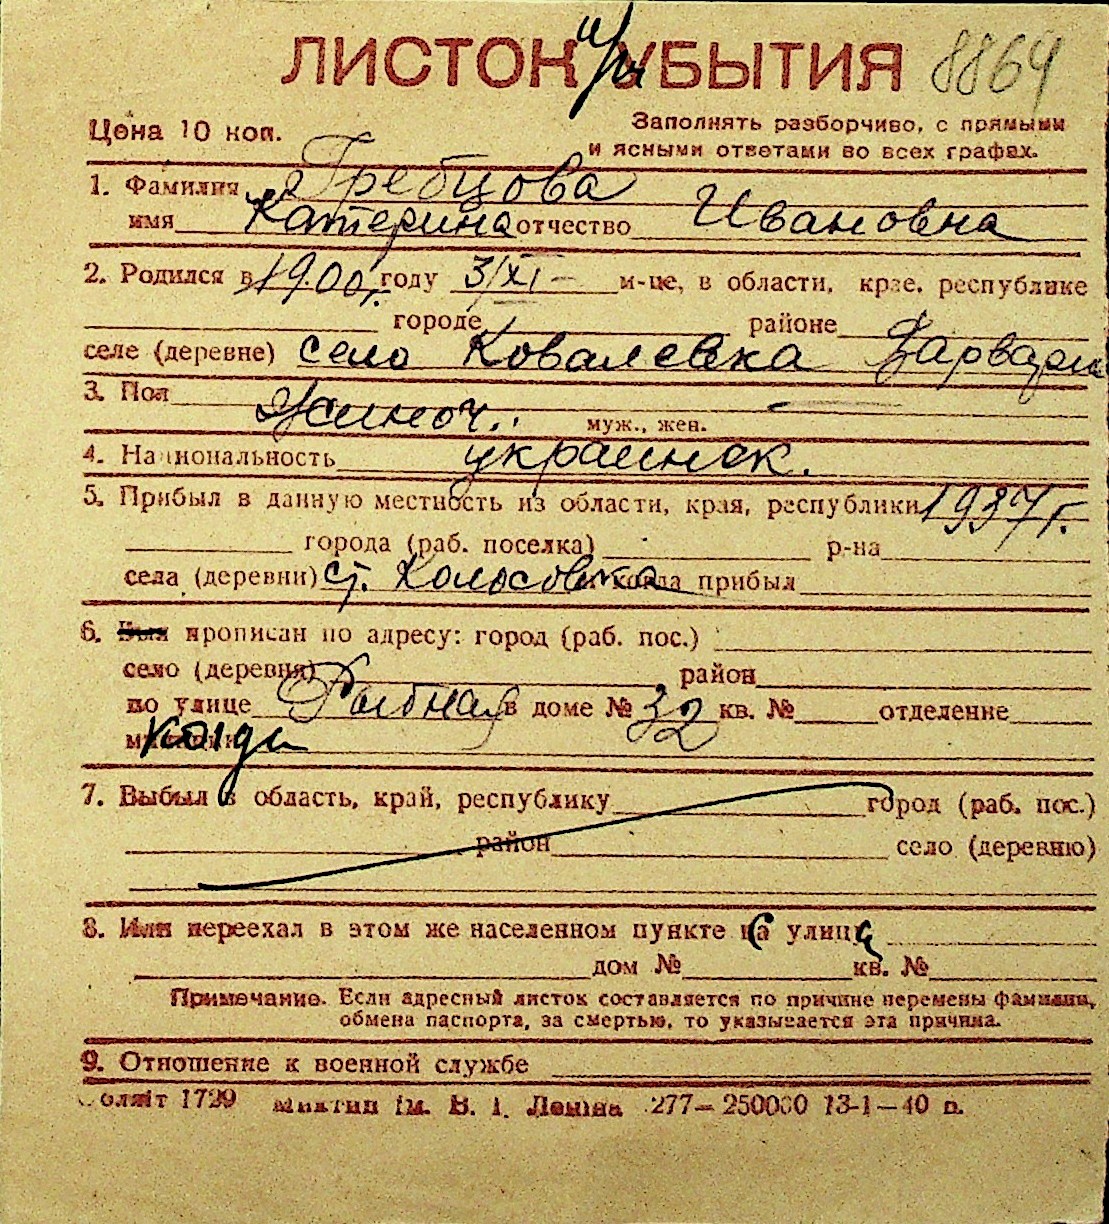 ЛИСТОК УБЫТИЯ 8864
Цена 10 коп.
Заполнять разборчиво, с прямыми
и ясными ответами во всех графах.
1. Фамилия Гребцова
имя Катерина отчество Ивановна
2. Родился в 1900 г. году 3/XI – м-це, в области, крае, республике
городе районе
селе (деревне) село Ковалевка
3. Пол Жиноч. муж., жен.
4. Национальность украинск.
5. Прибыл в данную местность из области, края, республики 1937 г.
города (раб. поселка) р-на
села (деревни) ст. Колосовка и когда прибыл
6. Был прописан по адресу: город (раб. пос.)
село (деревня) район
по улице в доме № 32 кв. № отделение
милиции когда
7. Выбыл в область, край, республику город (раб. пос.)
район село (деревню)
8. Или переехал в этом же населенном пункте с улицы
дом № кв. №
Примечание. Если адресный листок составляется по причине перемены фамилии,
обмена паспорта, за смертью, то указывается эта причина.
9. Отношение к военной службе
1729 ім. В. І. Леніна 277— 250000 13-1—40 п.